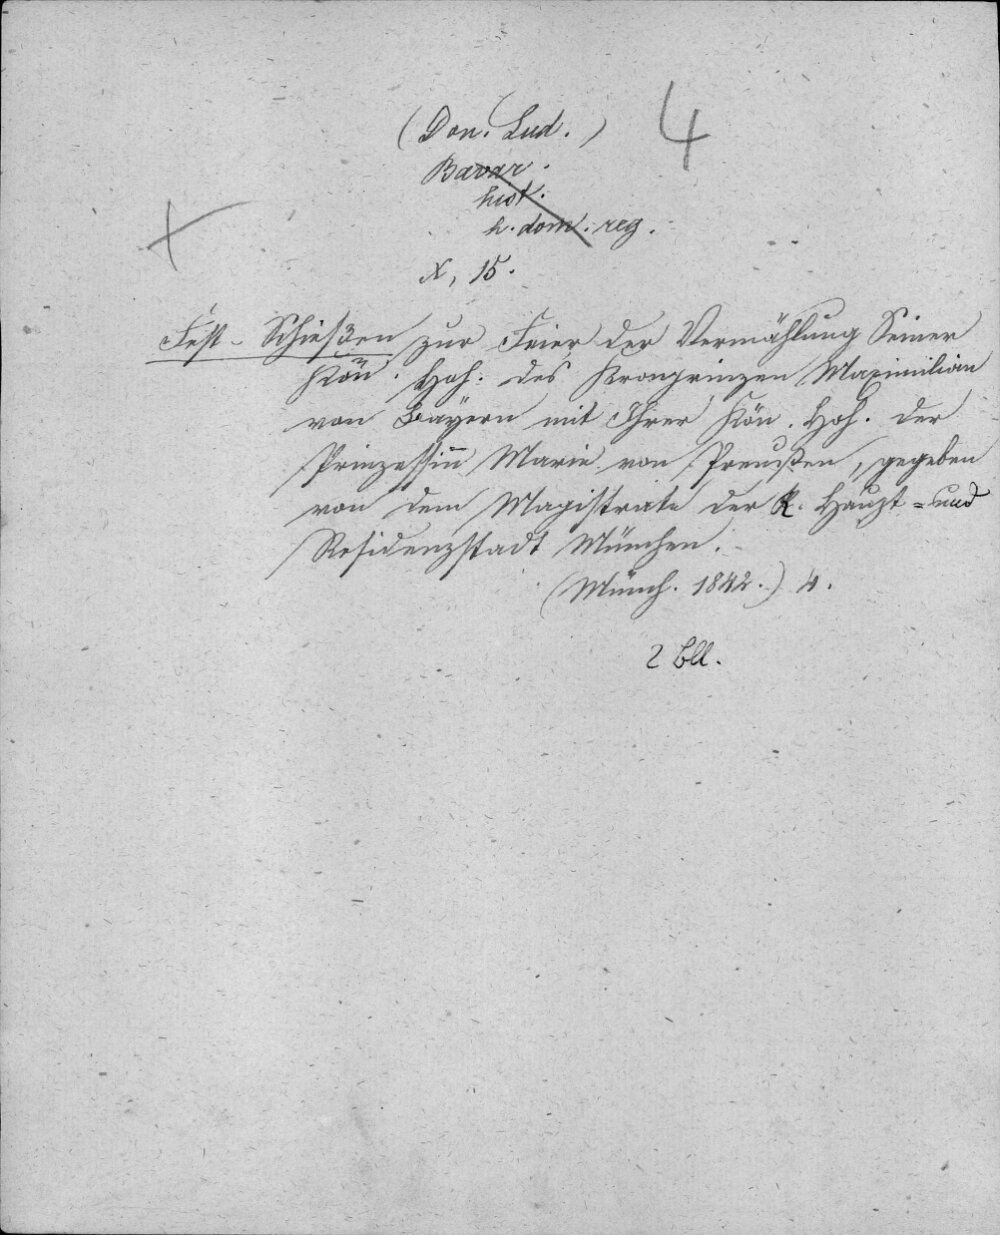 (Don. Lud.) 4
Bavar.
hist.
h. dom. reg.
X, 15.
Fest-Schießen zur Feier der Vermählung Seiner
Kön. Hoh. des Kronprinzen Maximilian
von Bayern mit Ihrer Kön. Hoh. der
Prinzessin Marie von Preußen, gegeben
von dem Magistrate der K. Haupt= und
Residenzstadt München.
(Münch. 1842.) 4.
2 Bll.